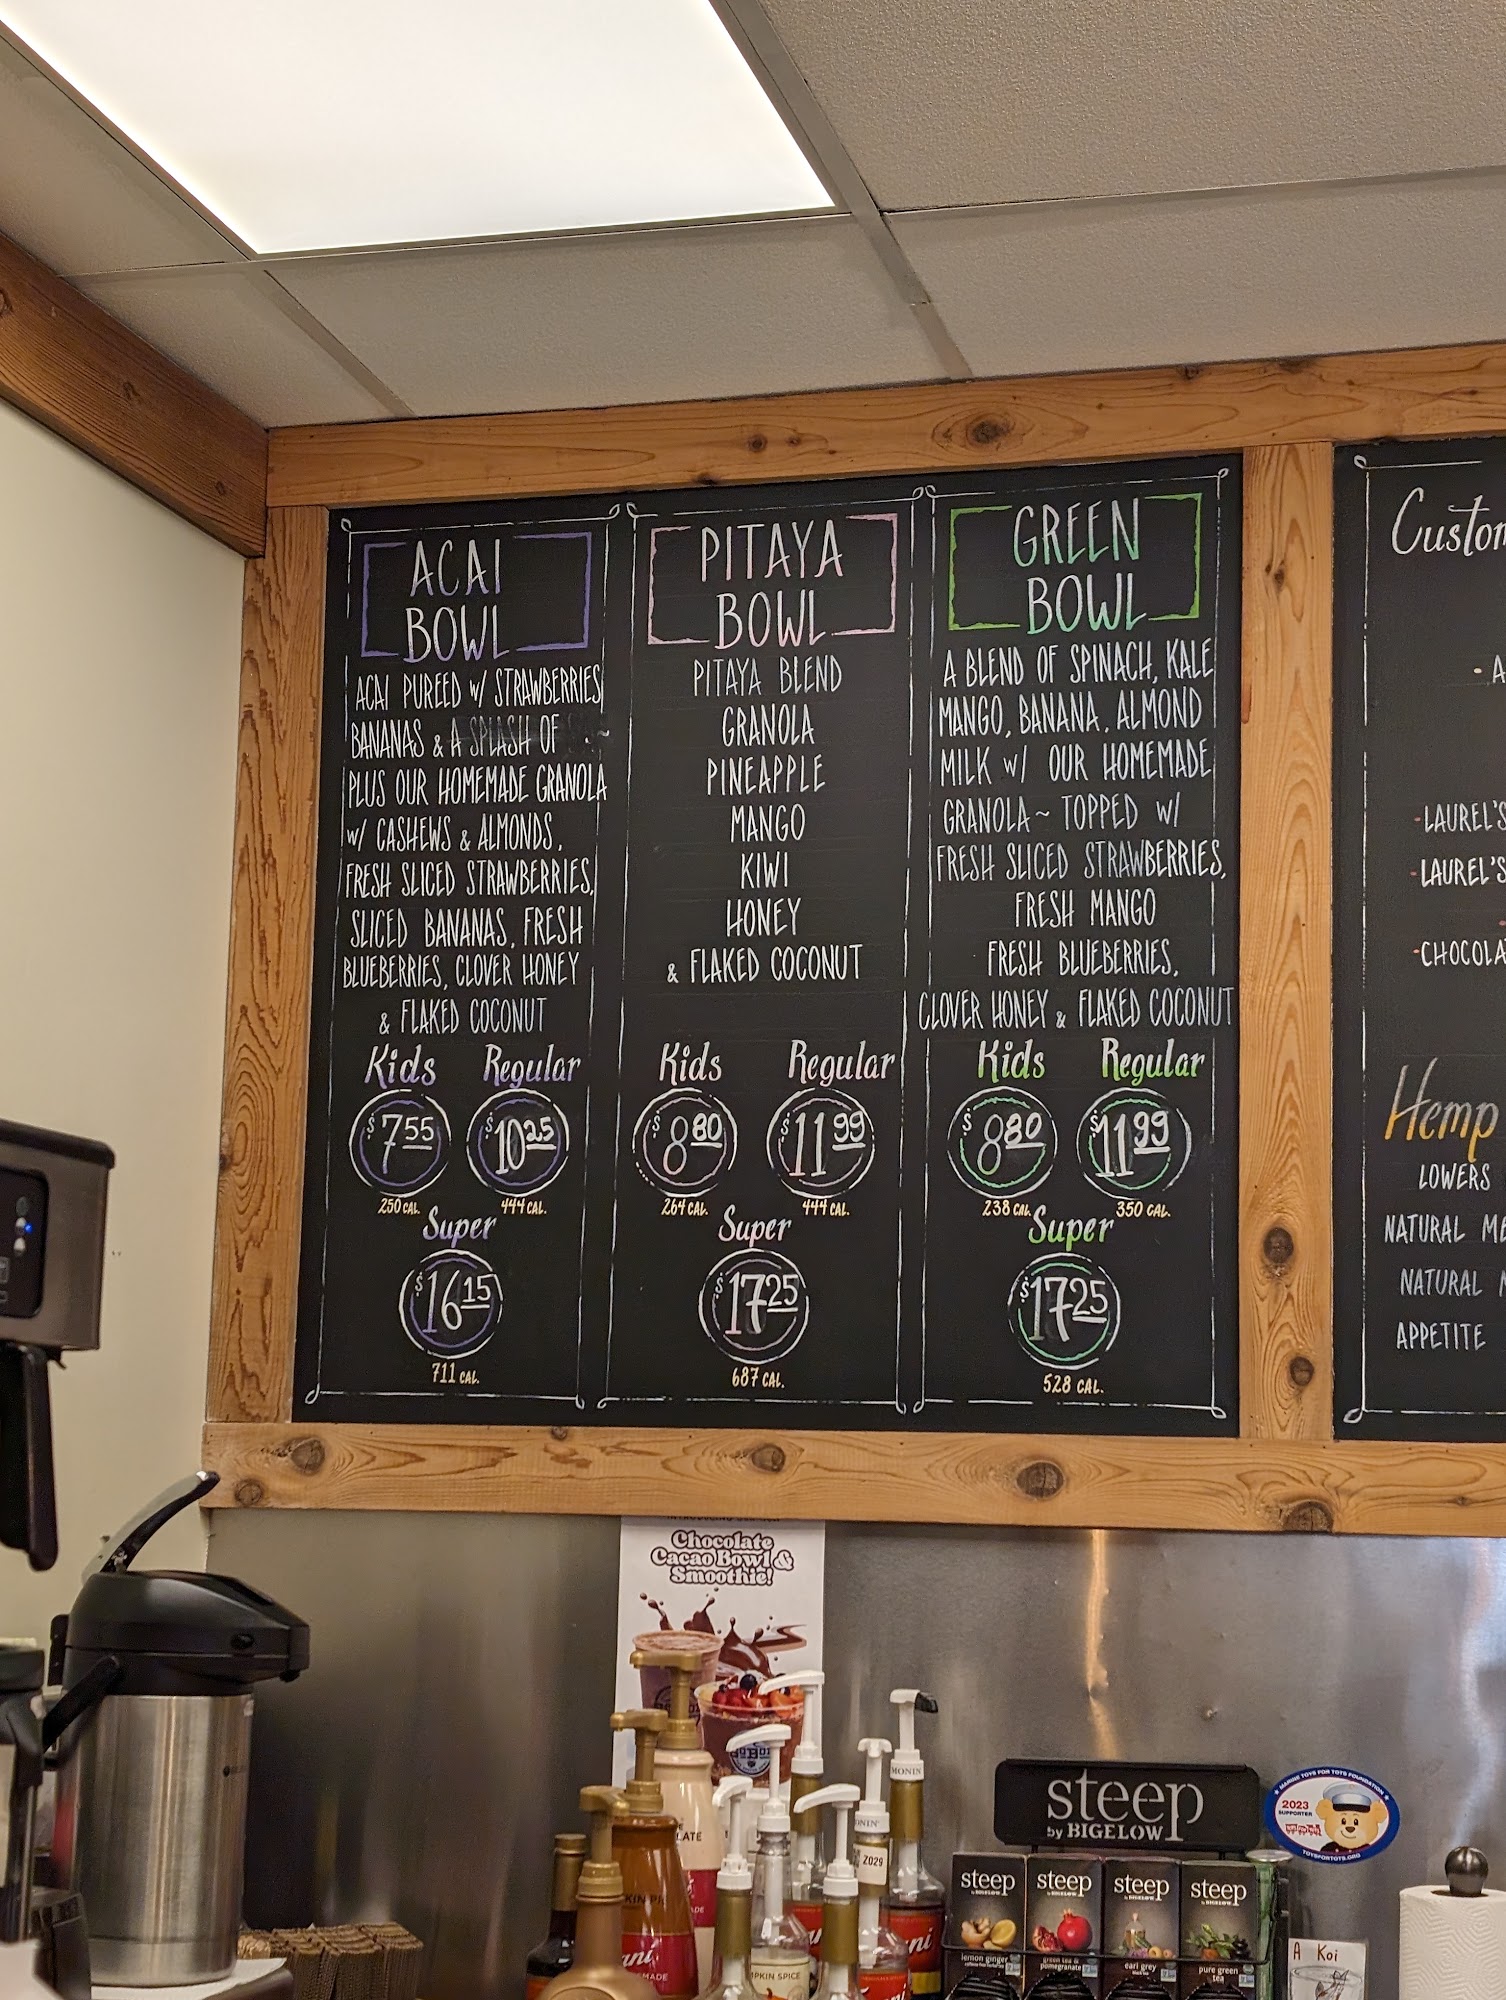 ACAI
BOWL
ACAI PUREED w/ STRAWBERRIES
BANANAS & A SPLASH OF
PLUS OUR HOMEMADE GRANOLA
w/ CASHEWS & ALMONDS,
FRESH SLICED STRAWBERRIES,
SLICED BANANAS, FRESH
BLUEBERRIES, CLOVER HONEY
& FLAKED COCONUT
Kids Regular
$7 55 $10 25
250 CAL. 444 CAL.
Super
$16 15
711 CAL.
PITAYA
BOWL
PITAYA BLEND
GRANOLA
PINEAPPLE
MANGO
KIWI
HONEY
& FLAKED COCONUT
Kids Regular
$8 80 $11 99
264 CAL. 444 CAL.
Super
$17 25
687 CAL.
GREEN
BOWL
A BLEND OF SPINACH, KALE
MANGO, BANANA, ALMOND
MILK w/ OUR HOMEMADE
GRANOLA ~ TOPPED w/
FRESH SLICED STRAWBERRIES,
FRESH MANGO
FRESH BLUEBERRIES,
CLOVER HONEY & FLAKED COCONUT
Kids Regular
$8 80 $11 99
238 CAL. 350 CAL.
Super
$17 25
528 CAL.
Custom
· A
-LAUREL'S
-LAUREL'S
-CHOCOLA
Hemp
LOWERS
NATURAL
NATURAL
APPETITE
Chocolate
Cacao Bowl &
Smoothie!
MONIN
Z029
PKIN SPICE
steep
by BIGELOW
steep
lemon ginger
steep
green tea &
pomegranate
steep
earl grey
steep
pure green
tea
MARINE TOYS FOR TOTS FOUNDATION
2023
SUPPORTER
TOYSFORTOTS.ORG
A Koi